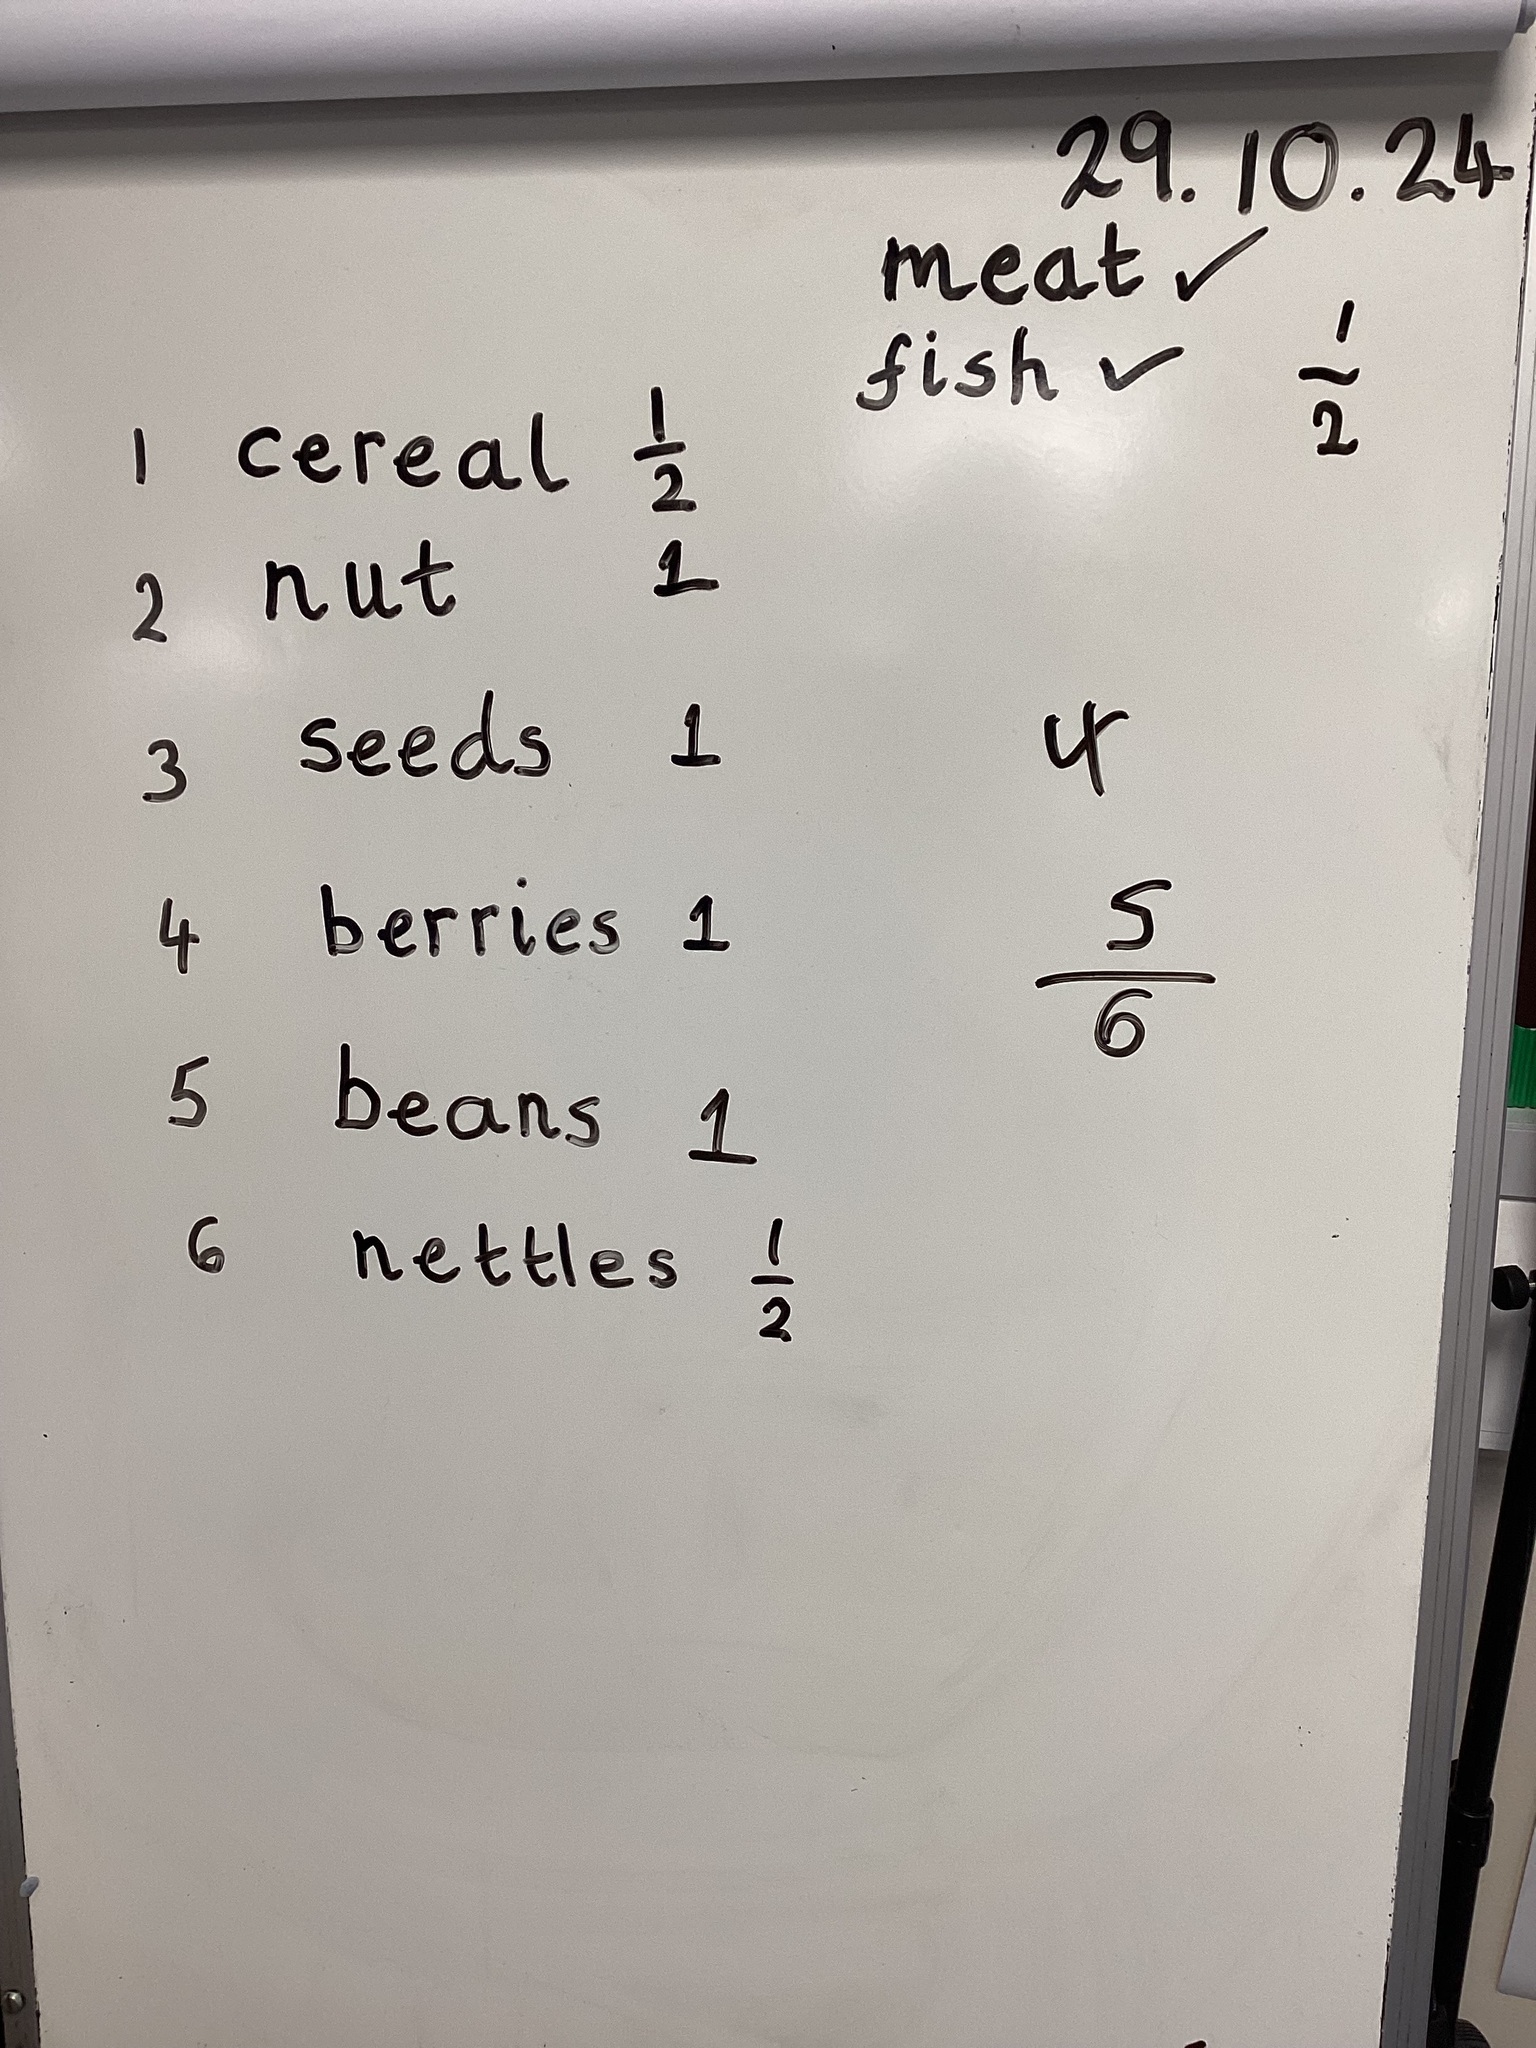 29.10.24
meat ✓
fish ✓ 1/2
1 cereal 1/2
2 nut 1
3 seeds 1 4
4 berries 1 5/6
5 beans 1
6 nettles 1/2